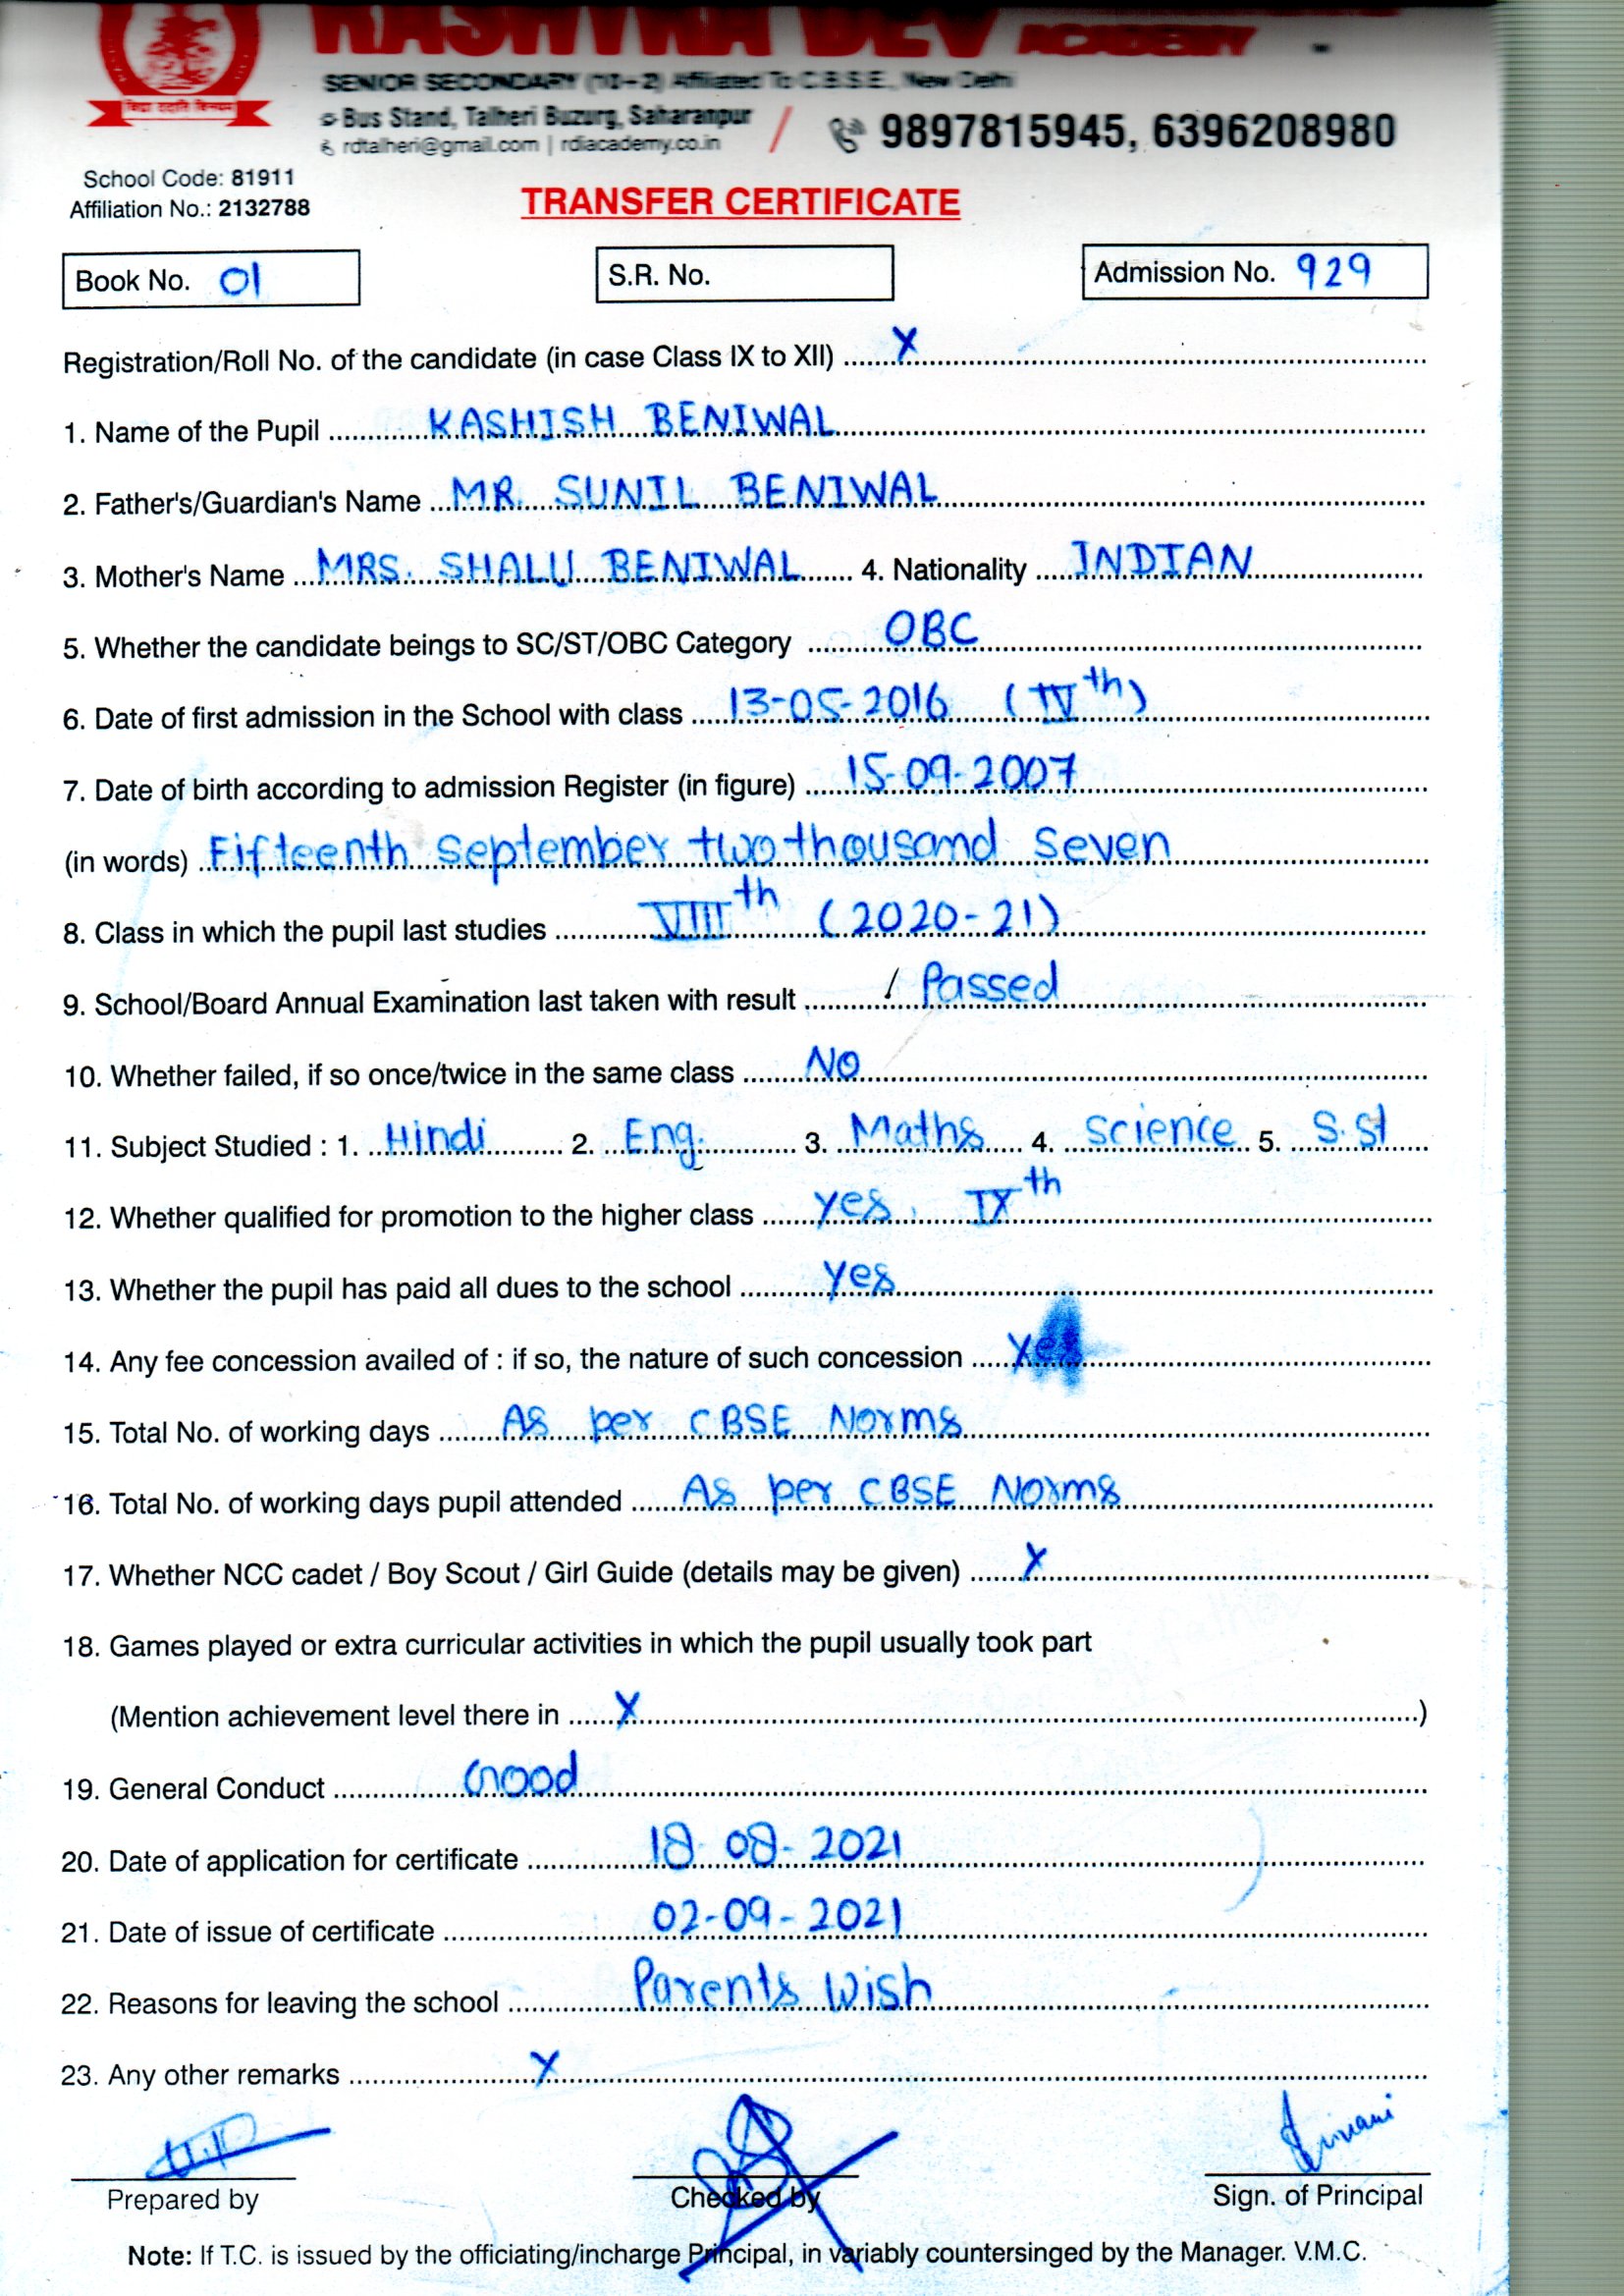 DEV ACADEMY
SENIOR SECONDARY (10+2) Affiliated To C.B.S.E., New Delhi
विद्या ददाति विनयम्
Bus Stand, Talheri Buzurg, Saharanpur / 9897815945, 6396208980
rdtalheri@gmail.com | rdiacademy.co.in
School Code: 81911
Affiliation No.: 2132788
TRANSFER CERTIFICATE
Book No. 01 S.R. No. Admission No. 929
Registration/Roll No. of the candidate (in case Class IX to XII) ...... X
1. Name of the Pupil ...... KASHISH BENIWAL
2. Father's/Guardian's Name ... MR. SUNIL BENIWAL
3. Mother's Name ... MRS. SHALU BENIWAL ...... 4. Nationality ..... INDIAN
5. Whether the candidate beings to SC/ST/OBC Category ...... OBC
6. Date of first admission in the School with class ..... 13-05-2016 (IVth)
7. Date of birth according to admission Register (in figure) ..... 15-09-2007
(in words) .. Fifteenth September two thousand Seven
8. Class in which the pupil last studies ...... VIIIth (2020-21)
9. School/Board Annual Examination last taken with result ...... / Passed
10. Whether failed, if so once/twice in the same class ...... NO
11. Subject Studied : 1. Hindi 2. Eng. 3. Maths 4. Science 5. S.St
12. Whether qualified for promotion to the higher class ...... yes, IXth
13. Whether the pupil has paid all dues to the school ...... yes
14. Any fee concession availed of : if so, the nature of such concession ..... yes
15. Total No. of working days ...... As per CBSE Norms
16. Total No. of working days pupil attended ..... As per CBSE Norms
17. Whether NCC cadet / Boy Scout / Girl Guide (details may be given) ...... X
18. Games played or extra curricular activities in which the pupil usually took part
(Mention achievement level there in ...... X ......)
19. General Conduct ...... Good
20. Date of application for certificate ...... 18-08-2021
21. Date of issue of certificate ...... 02-09-2021
22. Reasons for leaving the school ...... Parents Wish
23. Any other remarks ...... X
Prepared by Checked by Sign. of Principal
Note: If T.C. is issued by the officiating/incharge Principal, in variably countersinged by the Manager. V.M.C.